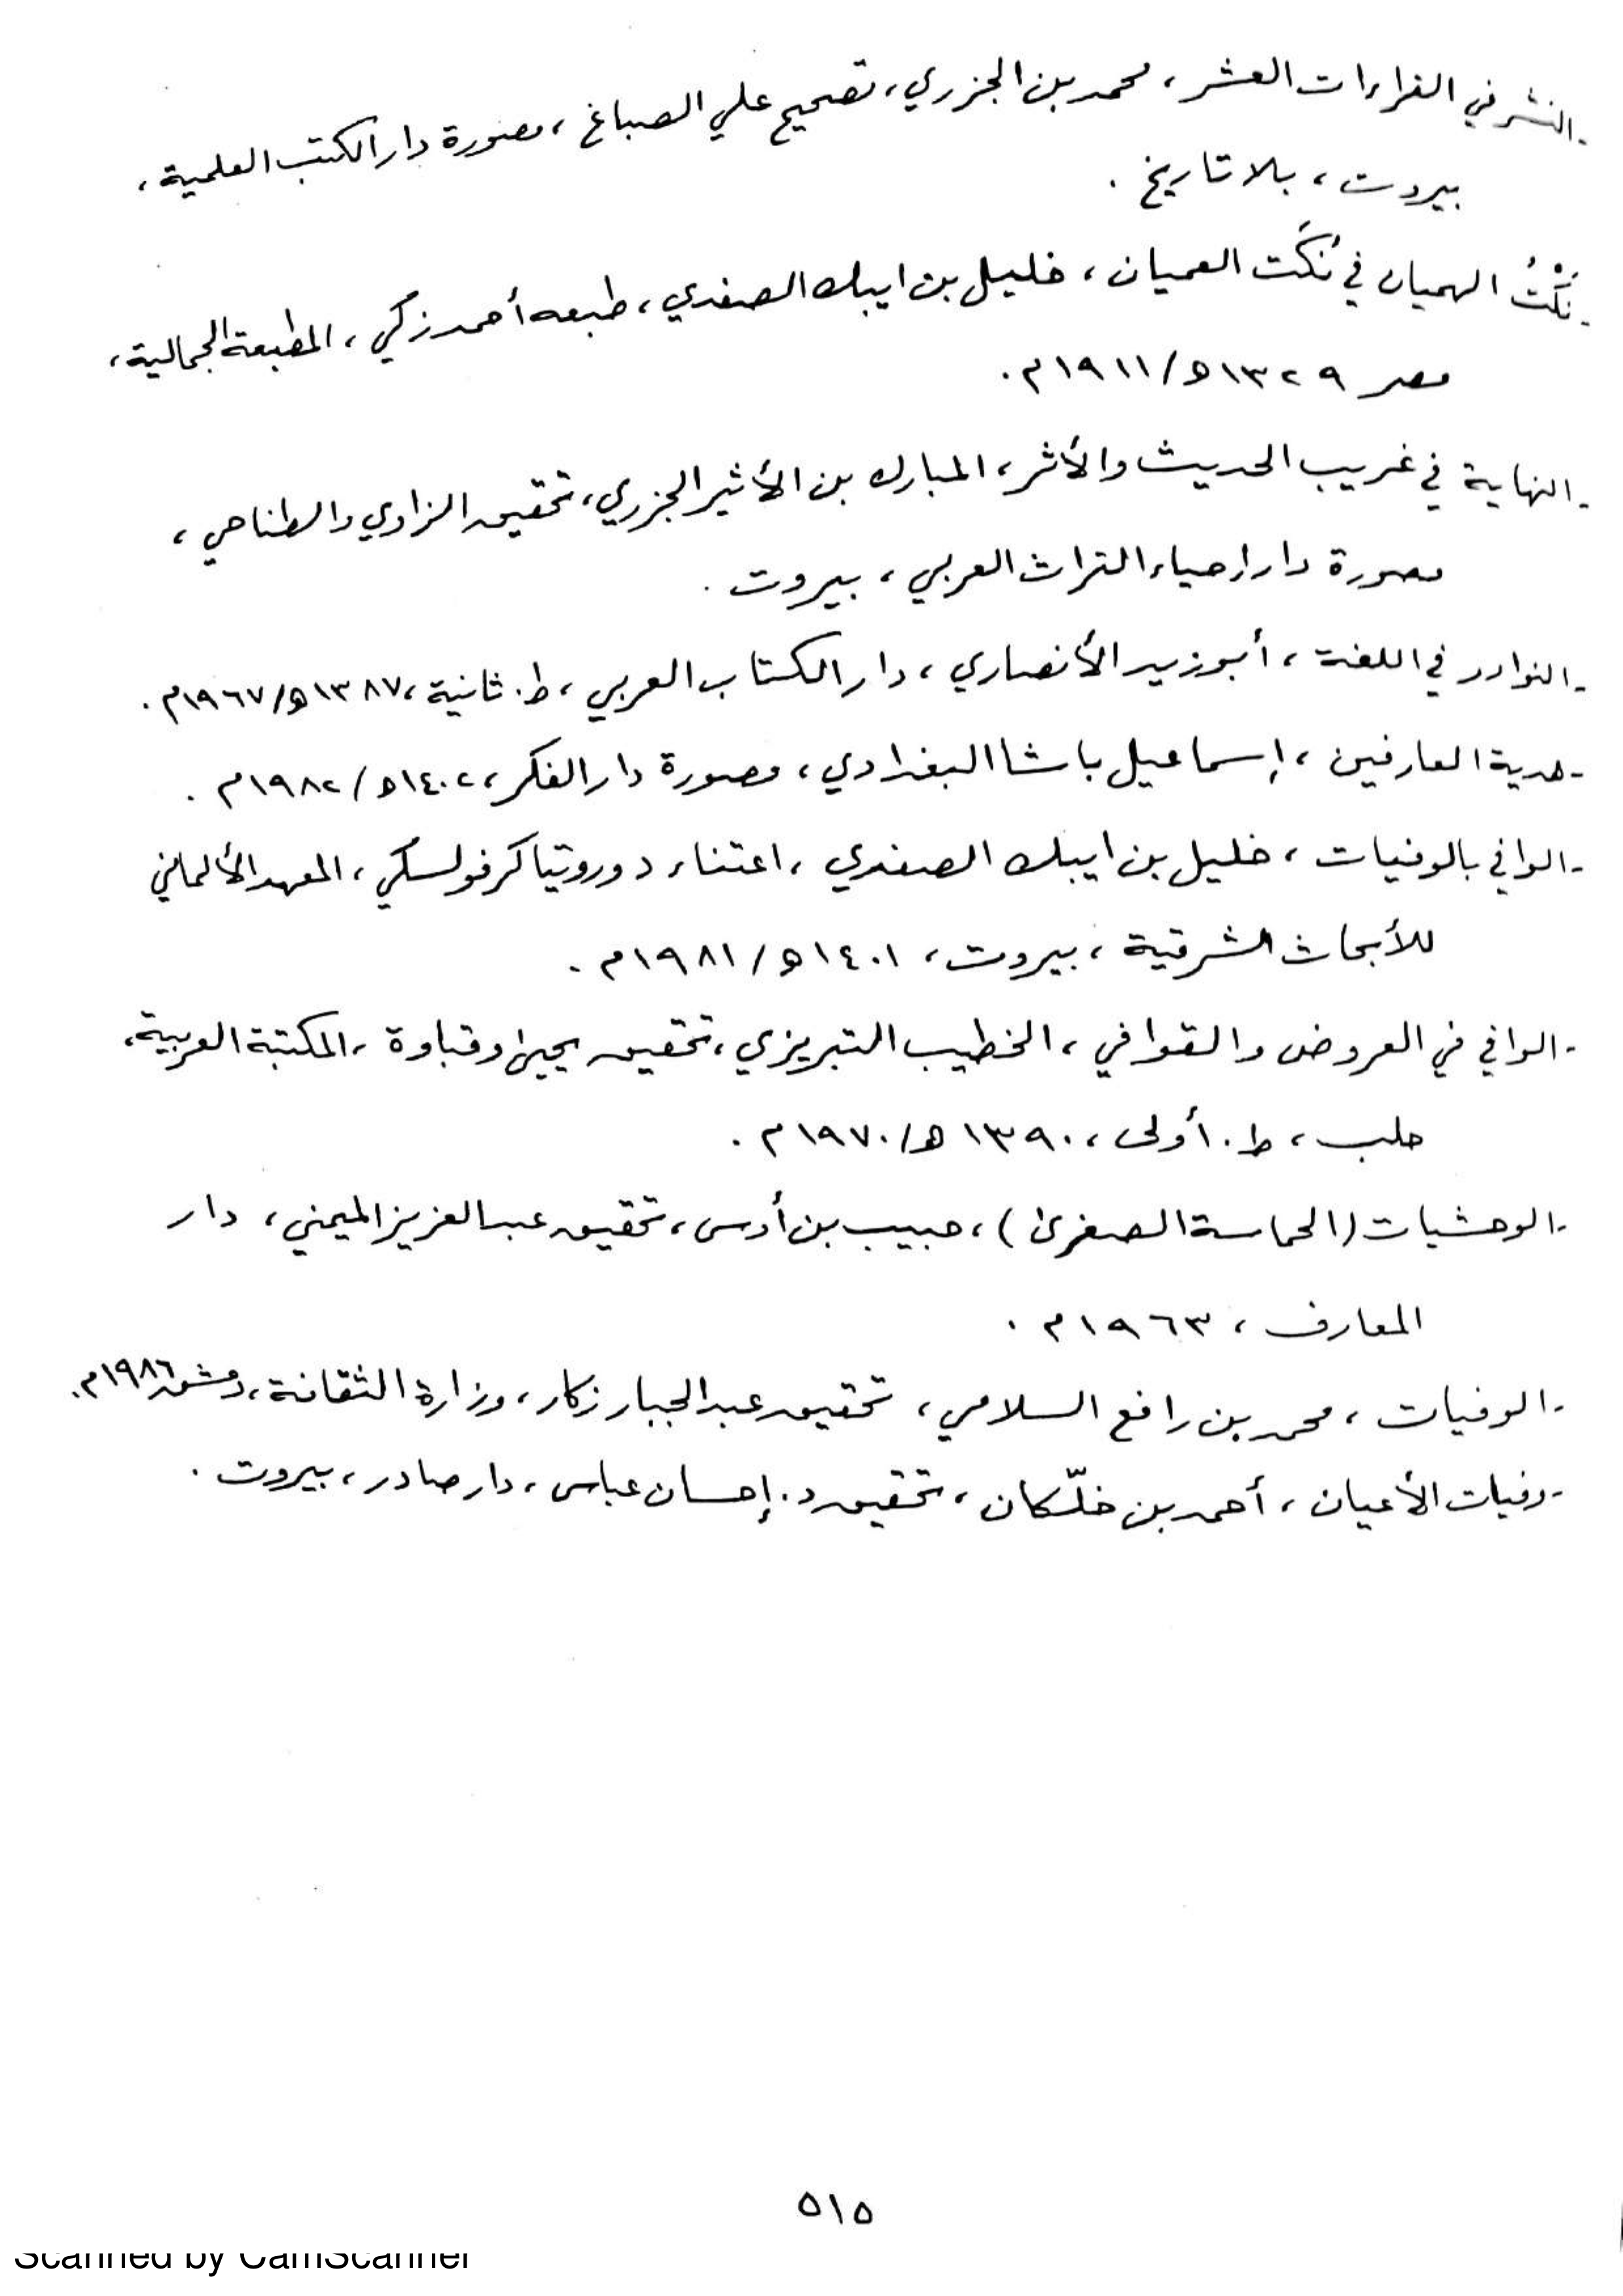 - النشر في القراءات العشر، محمد بن الجزري، تصحيح علي الصباغ، مصورة دار الكتب العلمية،
بيروت، بلا تاريخ.
- نَكْتُ الهميان في نُكَت العميان، خليل بن ايبك الصفدي، طبعه أحمد زكي، المطبعة الجمالية،
مصر ١٣٢٩ه/١٩١١م.
- النهاية في غريب الحديث والأثر، المبارك بن الأثير الجزري، تحقيق الزاوي والطناحي،
مصورة دار إحياء التراث العربي، بيروت.
- النوادر في اللغة، أبو زيد الأنصاري، دار الكتاب العربي، ط. ثانية، ١٣٨٧ه/١٩٦٧م.
- هدية العارفين، إسماعيل باشا البغدادي، مصورة دار الفكر، ١٤٠٢ه/١٩٨٢م.
- الوافي بالوفيات، خليل بن ايبك الصفدي، اعتناء دوروتيا كرفولسكي، المعهد الألماني
للأبحاث الشرقية، بيروت، ١٤٠١ه/١٩٨١م.
- الوافي في العروض والقوافي، الخطيب التبريزي، تحقيق يحيى وقباوة، المكتبة العربية،
حلب، ط. أولى، ١٣٩٠ه/١٩٧٠م.
- الوحشيات (الحماسة الصغرى)، حبيب بن أوس، تحقيق عبد العزيز الميمني، دار
المعارف، ١٩٦٣م.
- الوفيات، محمد بن رافع السلامي، تحقيق عبد الجبار زكار، وزارة الثقافة، دمشق ١٩٨٦م.
- وفيات الأعيان، أحمد بن خلّكان، تحقيق د. إحسان عباس، دار صادر، بيروت.
٥١٥
Scanned by CamScanner